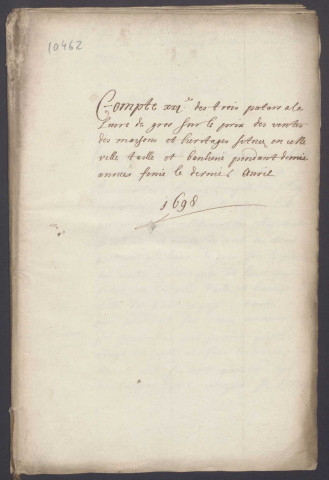 10462
Compte xxi.e des trois patars a la
Livre de gros sur le prix des ventes
des maisons et heritages situez en cette
ville taille et banlieue pendant demie
année finie le dernier Avril
1698